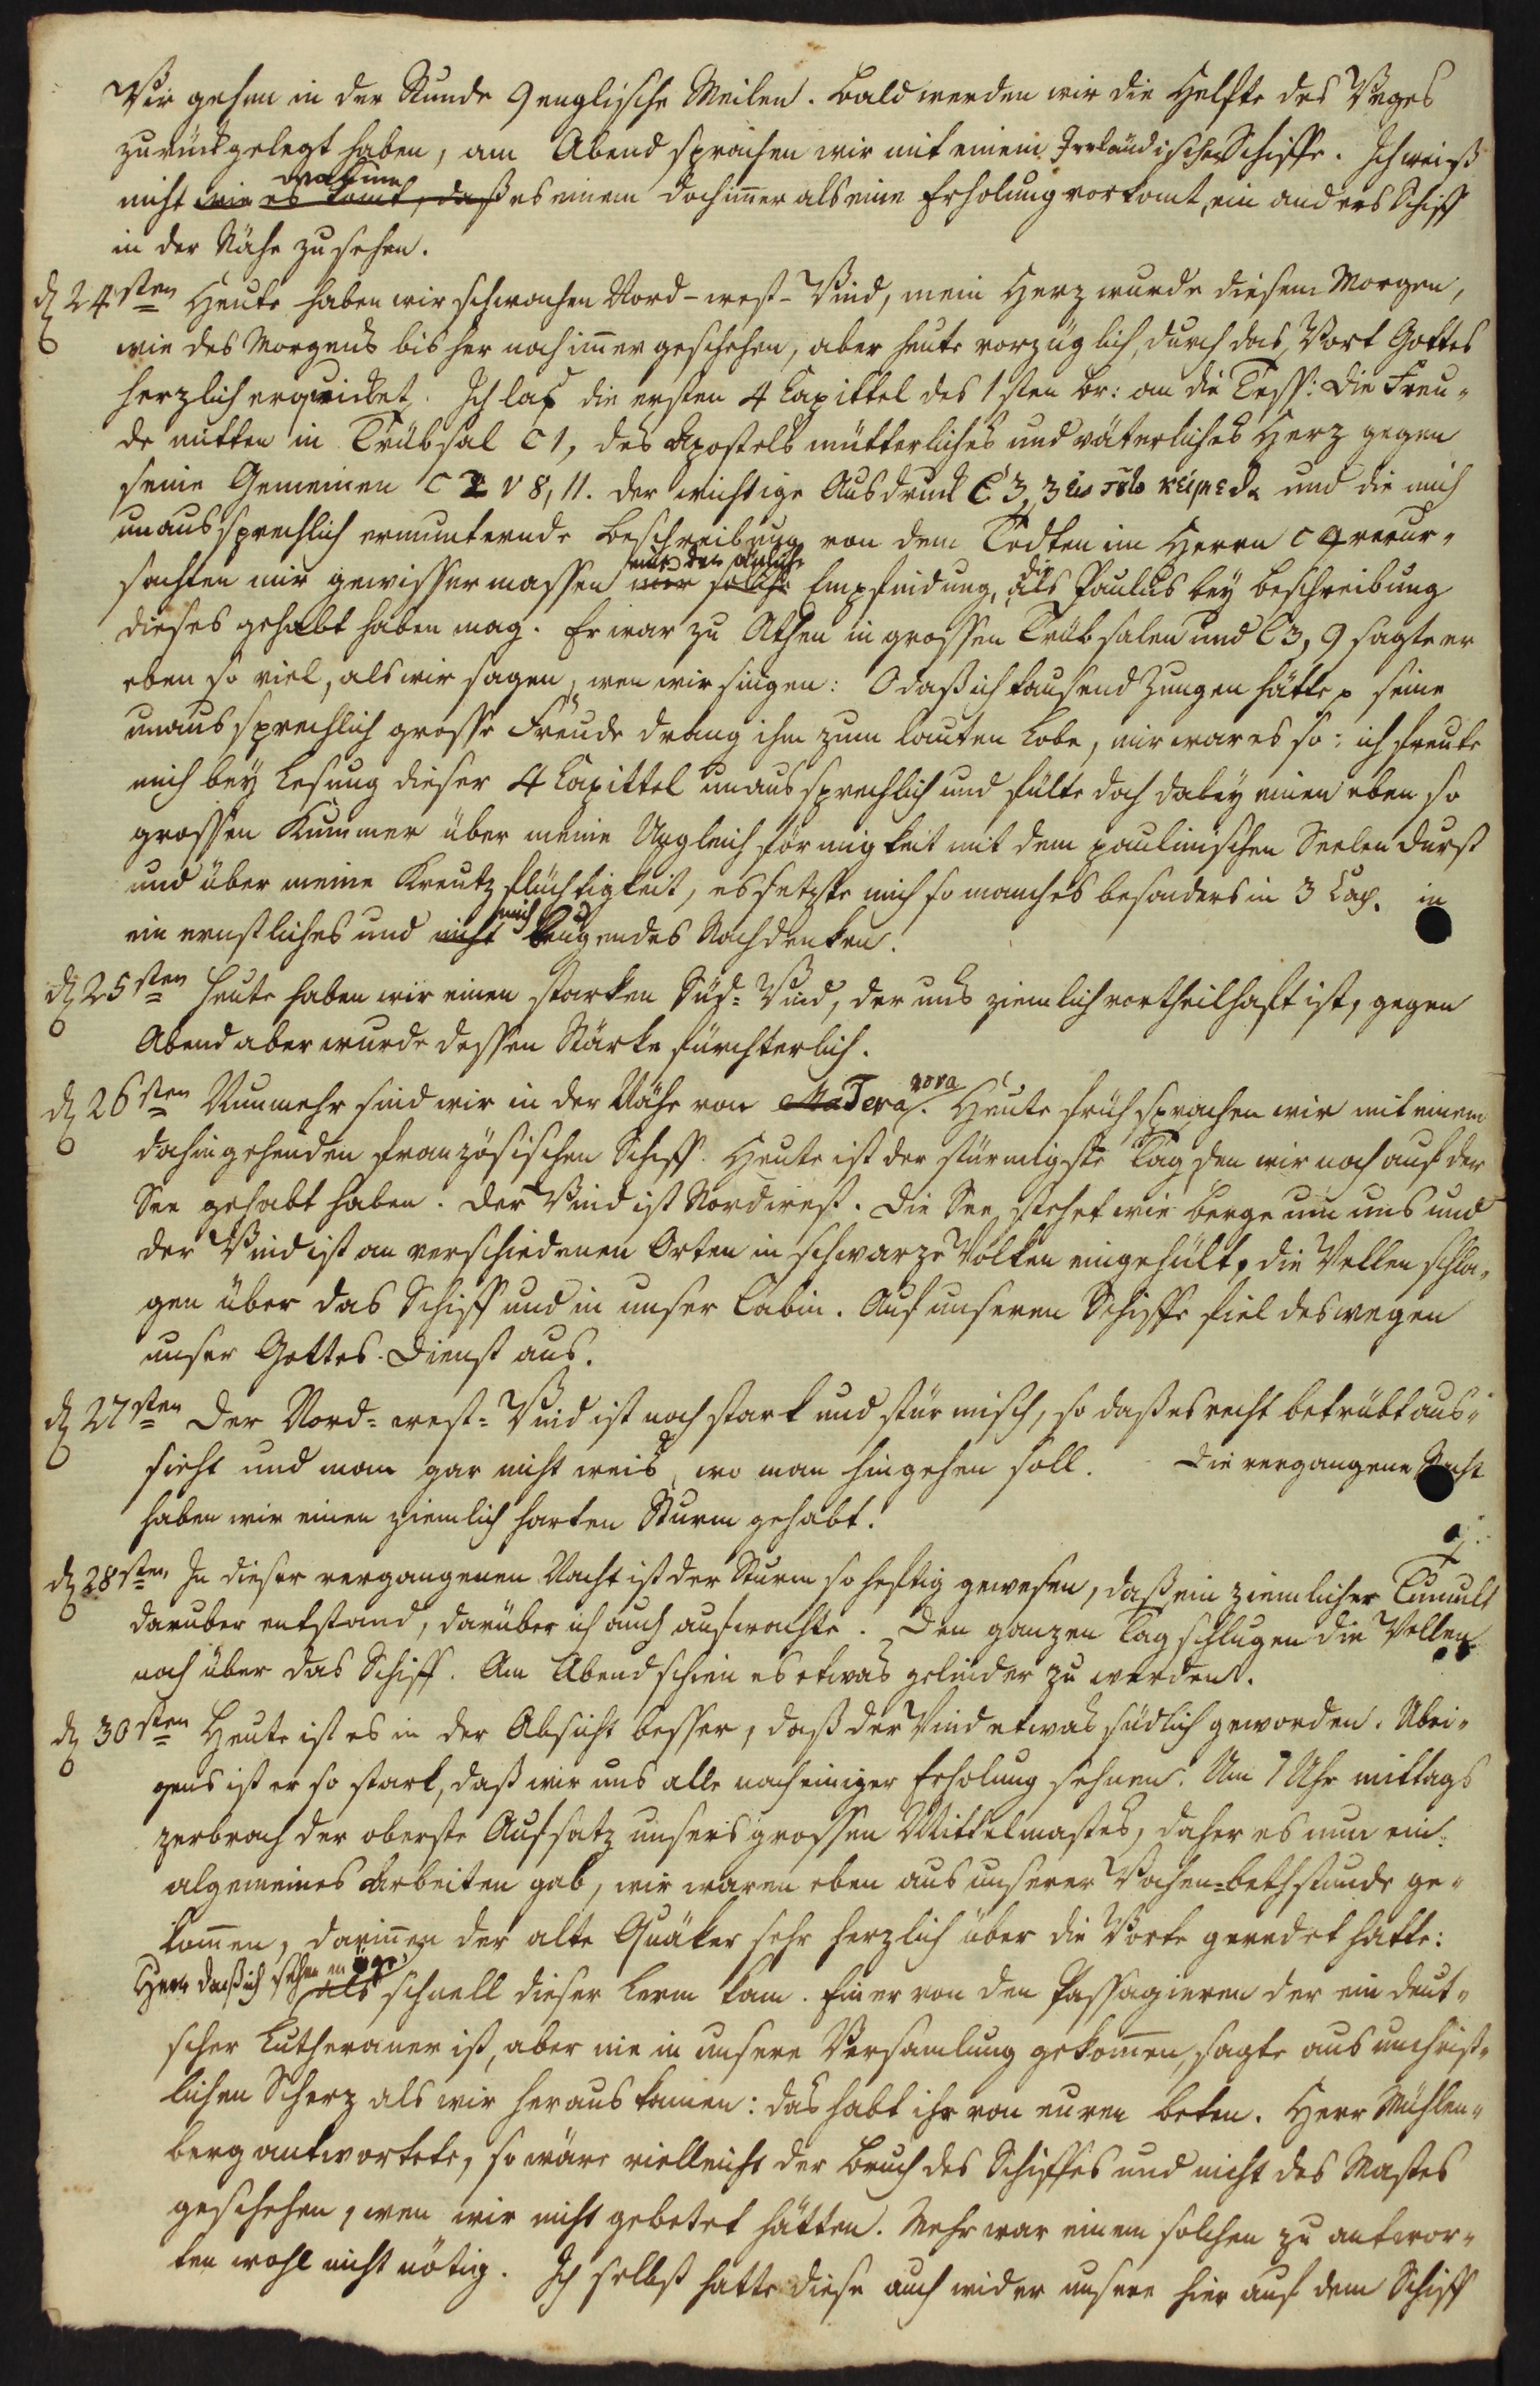 Wir gehen in der Stunde 9 englische Meilen. Bald werden wir die Helfte des Weges
zurückgelegt haben, am Abend sprachen wir mit einem Irrländischen Schiffe. Ich weiß
nicht wie es komt, daß es einem doch im̅er als eine Erholung vorkomt, ein anders Schiff
in der Nähe zu sehen.
d 24sten Heute haben wir schwachen Nord-west-Wind, mein Herz wurde diesem Morgen,
wie des Morgends bisher noch im̅er geschehen, aber heute vorzüglich, durch das Wort Gottes
herzlich erquicket. Ich las die ersten 4 Capittel des 1sten Br: an die Tess: die Freu-
de mitten in Trübsal C 1, des Apostels mütterliches und väterliches Herz gegen
seine Gemeinen C 2 V 8, 11. der wichtige Ausdruck C 3, 3 εις τουτο κειμεθα und die mich
unaussprechlich ermunternde Beschreibung von dem Todten im Herrn C 4 verur-
sachten mir gewissermassen nur solche Empfindung, die als Paulus bey Beschreibung
dieses gehabt haben mag. Er war zu Athen in grossen Trübsalen und C 3, 9 sagte er
eben so viel, als wir sagen, wen wir singen: O daß ich tausend Zungen hätte p seine
unaussprechlich grosse Freude drang ihn zum lauten Lobe, mir war es so: ich freute
mich bey Lesung dieser 4 Capittel unaussprechlich und fülte doch dabey einen eben so
grossen Kummer über meine Ungleichförmigkeit mit dem paulinischen Seelen durst
und über meine Kreutzflüchtigkeit, es setzte mich so manches besonders in 3 Cap. in
ein ernstliches und nicht mich beugendes Nachdenken.
d 25sten Heute haben wir einen starken Süd-Wind, der uns ziemlich vortheilhaft ist, gegen
Abend aber wurde dessen Stärke fürchterlich.
d 26sten Nunmehr sind wir in der Nähe von Madera. Heute früh sprachen wir mit einem
dahingehenden französischen Schiff. Heute ist der stürmigste Tag, den wir noch auf der
See gehabt haben. Der Wind ist Nordwest. Die See stehet wie Berge um uns und
der Wind ist an verschiedenen Orten in schwarze Wolken eingehült, die Wellen schla-
gen über das Schiff und in unser Cabin. Auf unserem Schiffe fiel deswegen
unser Gottes-Dienst aus.
d 27sten Der Nord-west-Wind ist noch stark und stürmisch, so daß es recht betrübt aus-
sieht und man gar nicht weis, wo man hingehen soll. Die vergangene Nacht
haben wir einen ziemlich harten Sturm gehabt.
d 28sten In dieser vergangenen Nacht ist der Sturm so heftig gewesen, daß ein ziemlicher Tumult
daruber entstand, darüber ich auch aufwachte. Den ganzen Tag schlugen die Wellen
noch über das Schiff. Am Abend schien es etwas gelinder zu werden.
d 30sten Heute ist es in der Absicht besser, daß der Wind etwas südlich geworden. Ubri-
gens ist er so stark, daß wir uns alle nach einiger Erholung sehnen. Um 1 Uhr mittags
zerbrach der oberste Aufsatz unsers grossen Mittelmastes, daher es nun ein
algemeines Arbeiten gab, wir waren eben aus unserer Wochen-bethstunde ge-
kom̅en, darin̅en der alte Quäker sehr herzlich über die Worte geredet hatte:
Herr daß ich sehen möge, als schnell dieser Lerm kam. Einer von den Passagieren der ein deut-
scher Lutheraner ist, aber nie in unsere Versamlung gekom̅en, sagte aus unchrist-
lichen Scherz als wir heraus kamen: das habt ihr von euren beten. Herr Mühlen-
berg antwortete, so wäre vielleicht der Bruch des Schiffes und nicht des Mastes
geschehen, wen wir nicht gebetet hätten. Mehr war einem solchen zu antwor-
ten wohl nicht nötig. Ich selbst hatte diese auch wider unsere hier auf dem Schiff